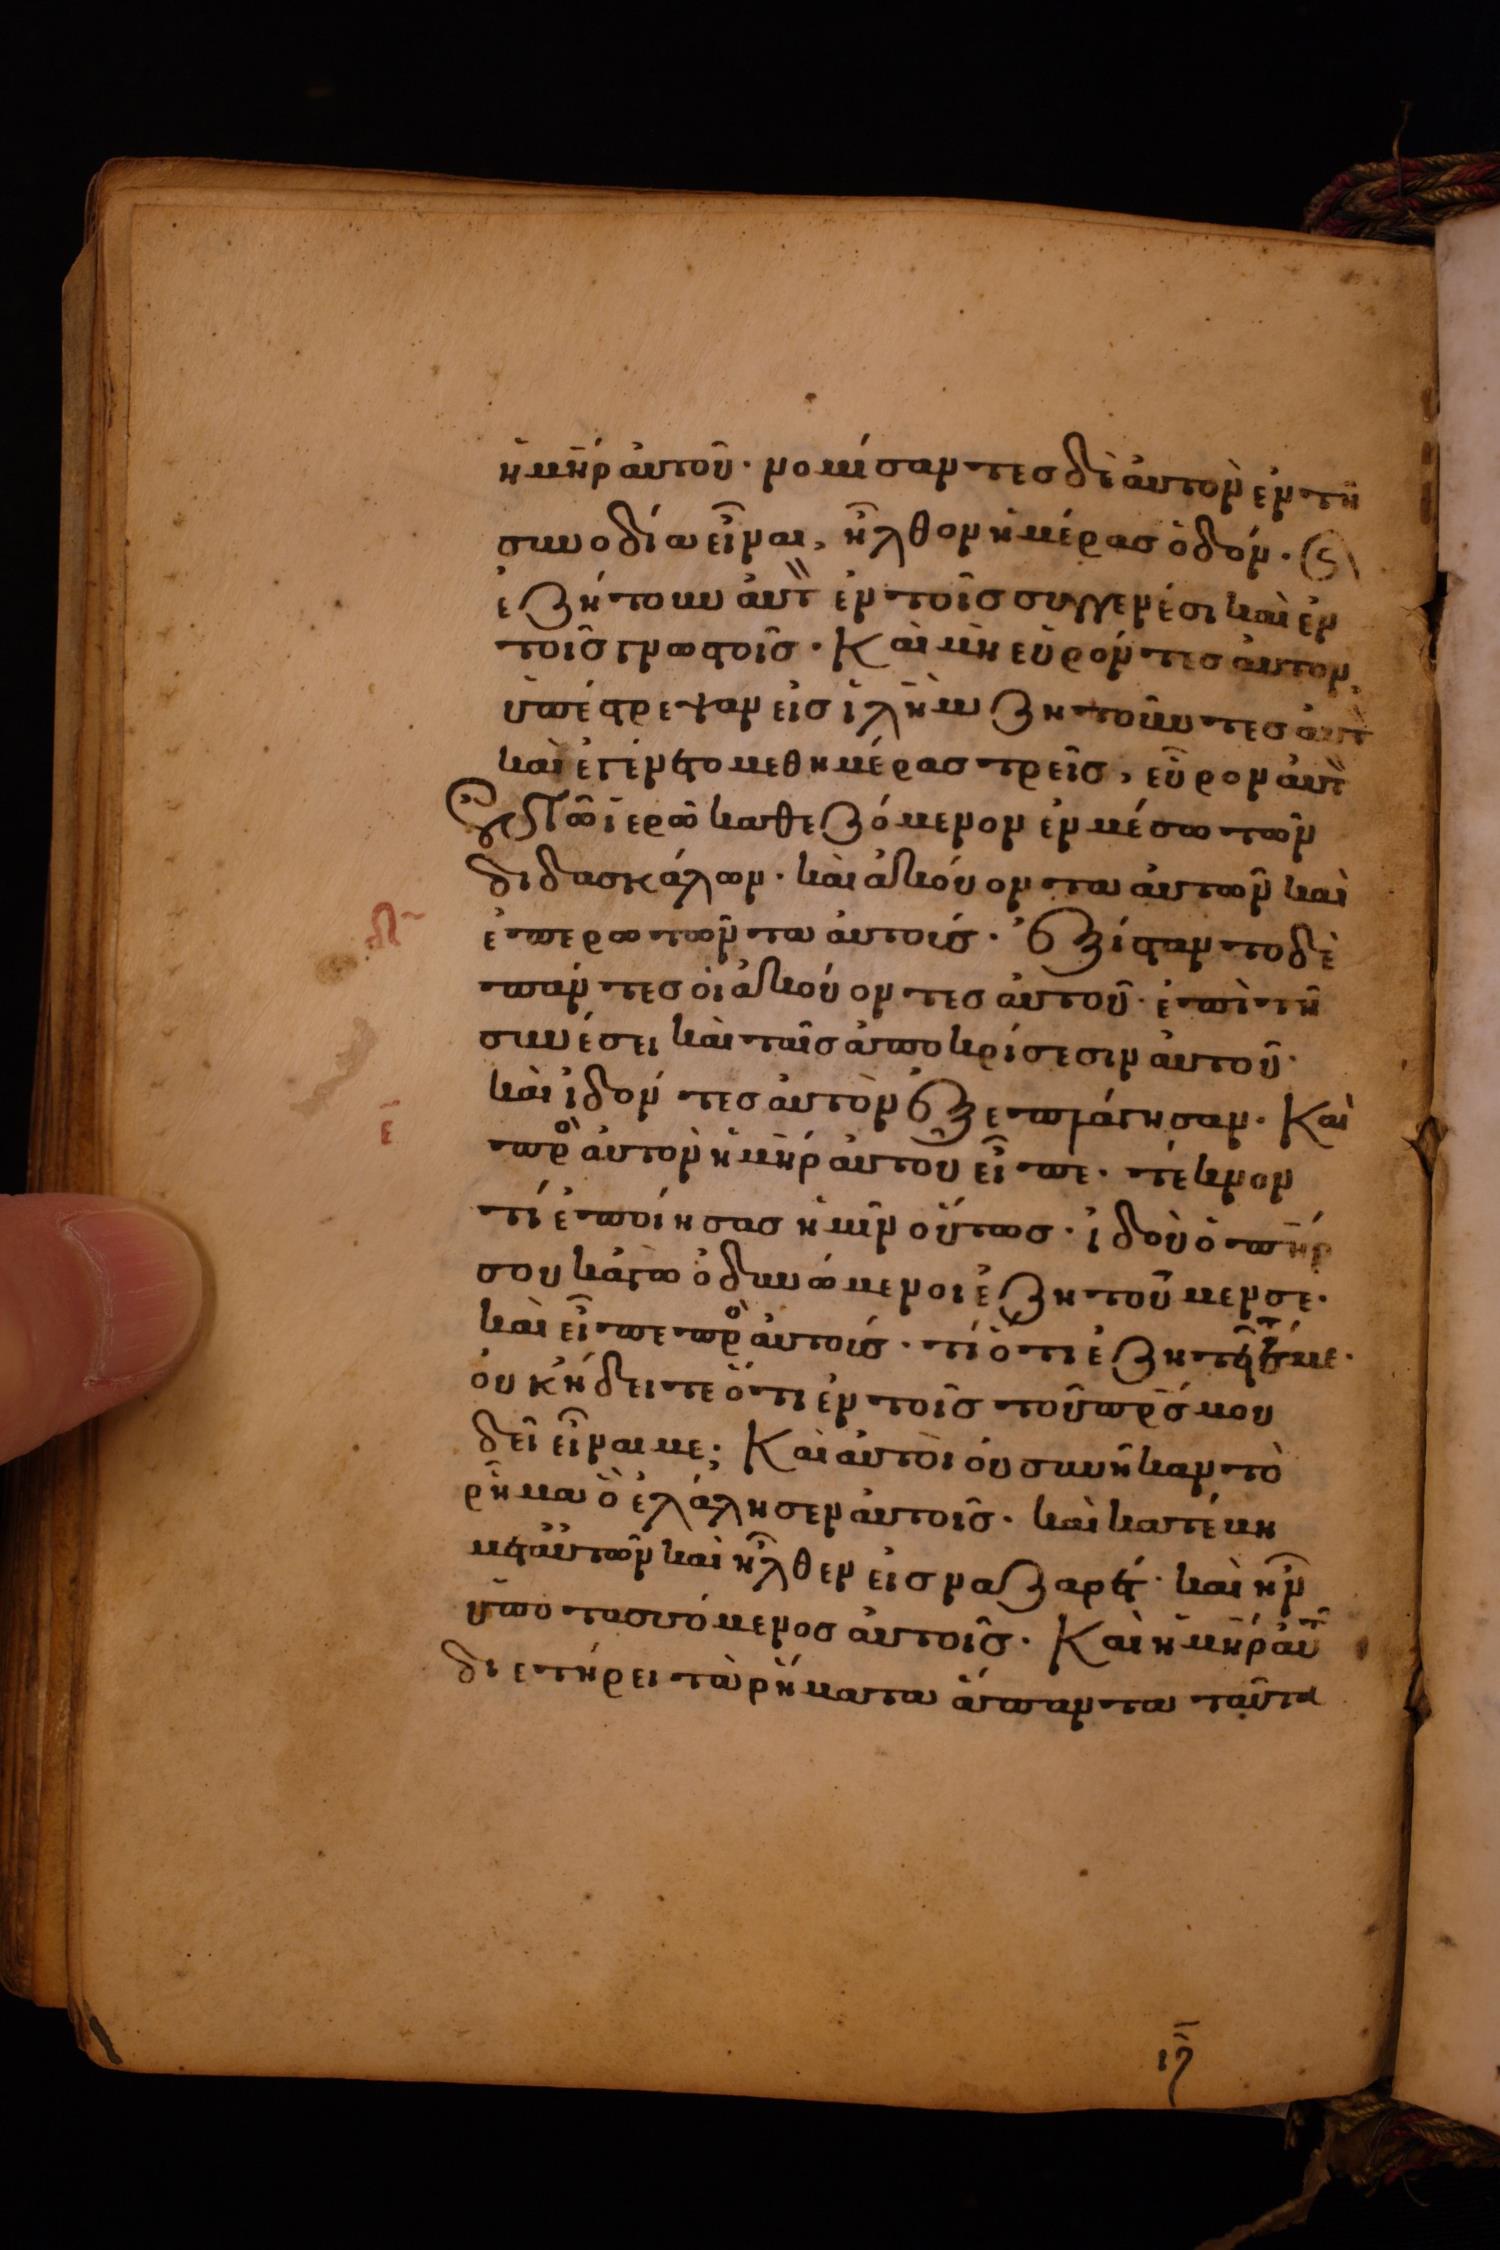 ἡ μη̅ρ αὐτοῦ· νομίσαντεσ δὲ αὐτὸν ἐν τῆ
συνοδία εἶναι, ἦλθον ἡμέρασ ὁδόν· (ς)
ἐζήτουν αὐτ ἐν τοῖσ συγγενέσι καὶ ἐν
τοῖσ γνωστοῖσ· Καὶ μὴ εὑρόντεσ αὐτον,
ὑπέστρεψαν εἰσ ἰλη̅μ ζητοῦντεσ αὐτ
καὶ ἐγένετο μεθ ἡμέρασ τρεῖσ, εὗρον αὐτ
ἐν τῶ ἱερῶ καθεζόμενον ἐν μέσω τῶν
διδασκάλων· καὶ ἀκούοντα αὐτῶν καὶ
δ̅
ἐπερωτῶντα αὐτούσ· ἐξίσταντο δὲ
πάντεσ οἱ ἀκούοντεσ αὐτοῦ· ἐπὶ τῆ
συνέσει καὶ ταῖσ ἀποκρίσεσιν αὐτοῦ·
καὶ ἰδόντεσ αὐτὸν ἐξεπλάγησαν· Καὶ
ε̅
πρὸ αὐτον ἡ μη̅ρ αὐτοῦ εἶπε· τέκνον
τί ἐποίησασ ἡμῖν οὕτωσ· ἰδοὺ ὁ πη̅ρ
σου κἀγὼ ὀδυνώμενοι ἐζητοῦμεν σε·
καὶ εἶπε πρὸ αὐτούσ· τί ὅτι ἐζητεῖτέ με·
οὐκ ἤδειτε ὅτι ἐν τοῖσ τοῦ πρ̅σ μου
δεῖ εἶναι με; Καὶ αὐτοὶ οὐ συνῆκαν τὸ
ρῆμα ὃ ἐλάλησεν αὐτοῖσ· καὶ κατέβη
μετ αὐτῶν καὶ ἦλθεν εἰσ ναζαρέτ· καὶ ἦν
ὑποτασσόμενοσ αὐτοῖσ· Καὶ ἡ μη̅ρ αὐτ
διετήρει τὰ ρήματα ἅπαντα ταῦτα
ιη̅